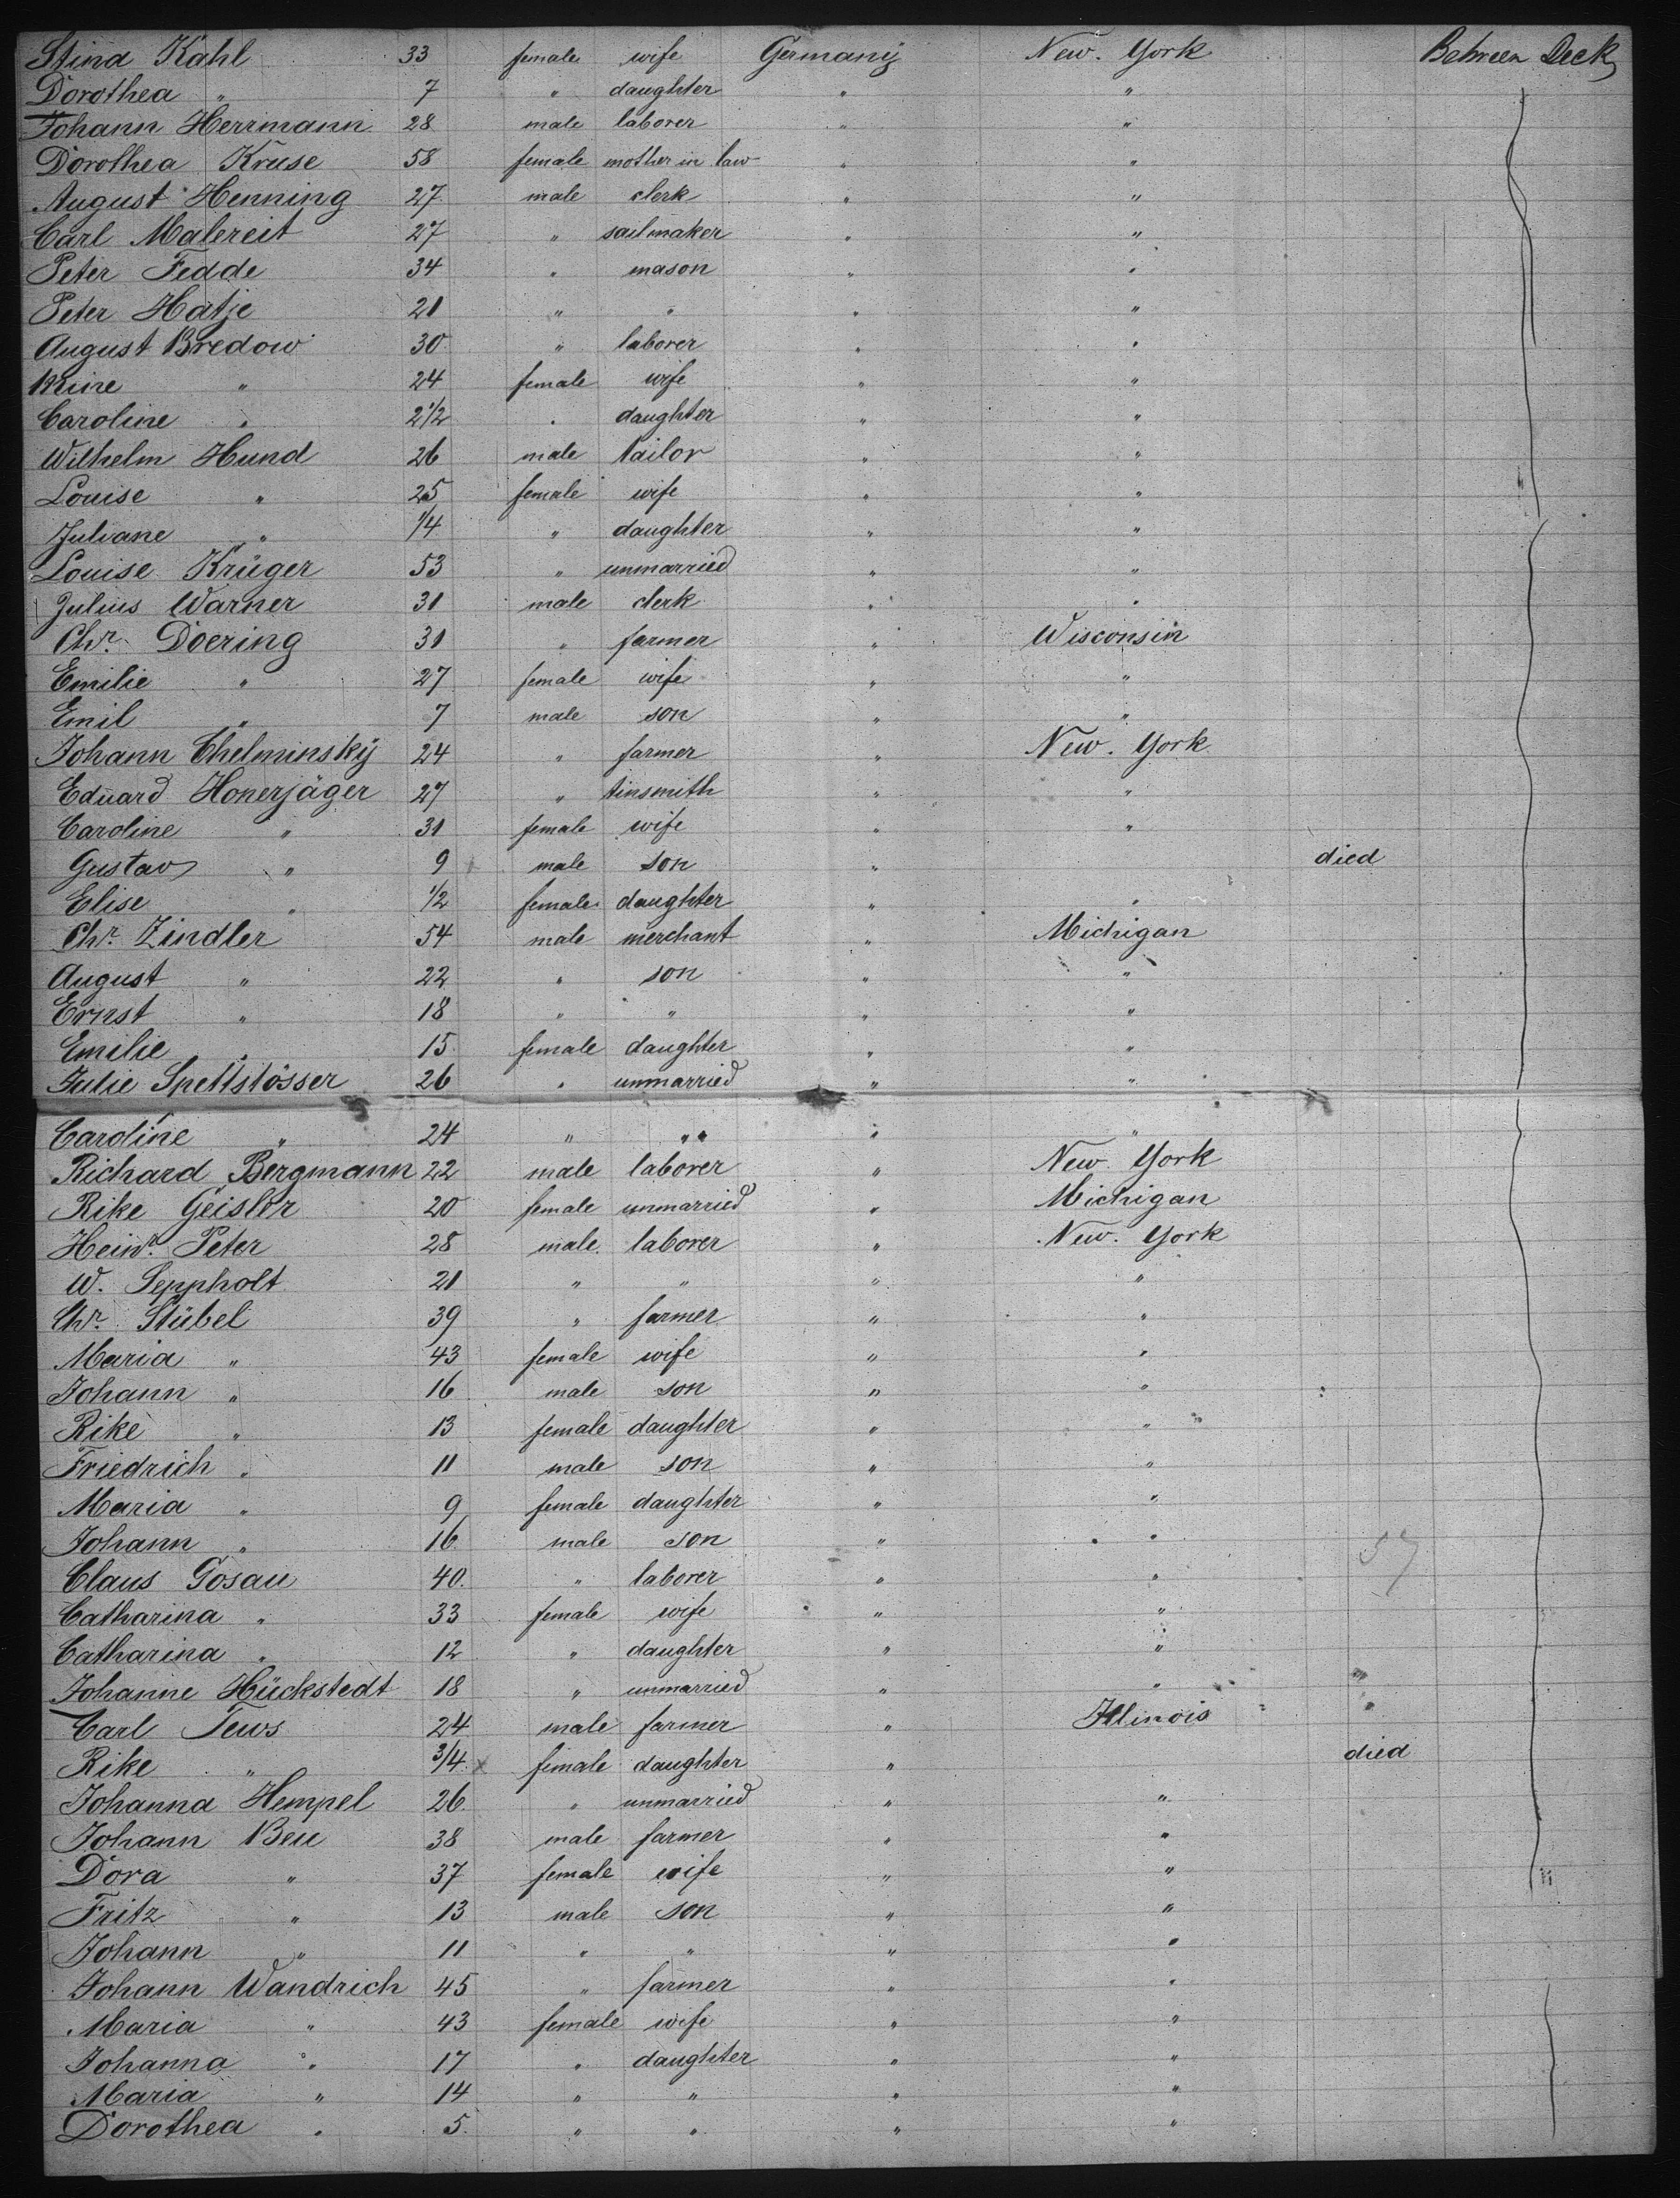 Stina Kahl 33 female wife Germany New. York Between Deck
Dorothea " 7 " daughter " "
Johann Herrmann 28 male laborer " "
Dorothea Kruse 58 female mother in law " "
August Henning 27 male clerk " "
Carl Malereit 27 " sailmaker " "
Peter Fedde 34 " mason " "
Peter Hatje 21 " " " "
August Bredow 30 " laborer " "
Mine " 24 female wife " "
Caroline " 2 1/2 " daughter " "
Wilhelm Hund 26 male tailor " "
Louise " 25 female wife " "
Juliane " 1/4 " daughter " "
Louise Krüger 53 " unmarried " "
Julius Warner 31 male clerk " "
Chr. Doering 31 " farmer " Wisconsin
Emilie " 27 female wife " "
Emil " 7 male son " "
Johann Chelminsky 24 " farmer " New. York
Eduard Honerjäger 27 " tinsmith " "
Caroline " 31 female wife " "
Gustav " 9 male son " died
Elise " 1/2 female daughter " "
Chr. Zindler 54 male merchant " Michigan
August " 22 " son " "
Ernst " 18 " " " "
Emilie " 15 female daughter " "
Julie Spettstösser 26 " unmarried " "
Caroline " 24 " " " "
Richard Bergmann 22 male laborer " New. York
Rike Geisler 20 female unmarried " Michigan
Heinr. Peter 28 male laborer " New. York
W. Seppholt 21 " " " "
Chr. Stübel 39 " farmer " "
Maria " 43 female wife " "
Johann " 16 male son " "
Rike " 13 female daughter " "
Friedrich " 11 male son " "
Maria " 9 female daughter " "
Johann " 16 male son " "
Claus Gosau 40. " laborer " "
Catharina " 33 female wife " "
Catharina " 12 " daughter " "
Johanne Hückstedt 18 " unmarried " "
Carl Tews 24 male farmer " Illinois
Rike " 3/4 x female daughter " died
Johanna Hempel 26. " unmarried " "
Johann Beu 38 male farmer " "
Dora " 37 female wife " "
Fritz " 13 male son " "
Johann " 11 " " " "
Johann Wandrich 45 " farmer " "
Maria " 43 female wife " "
Johanna " 17 " daughter " "
Maria " 14 " " " "
Dorothea " 5. " " " "